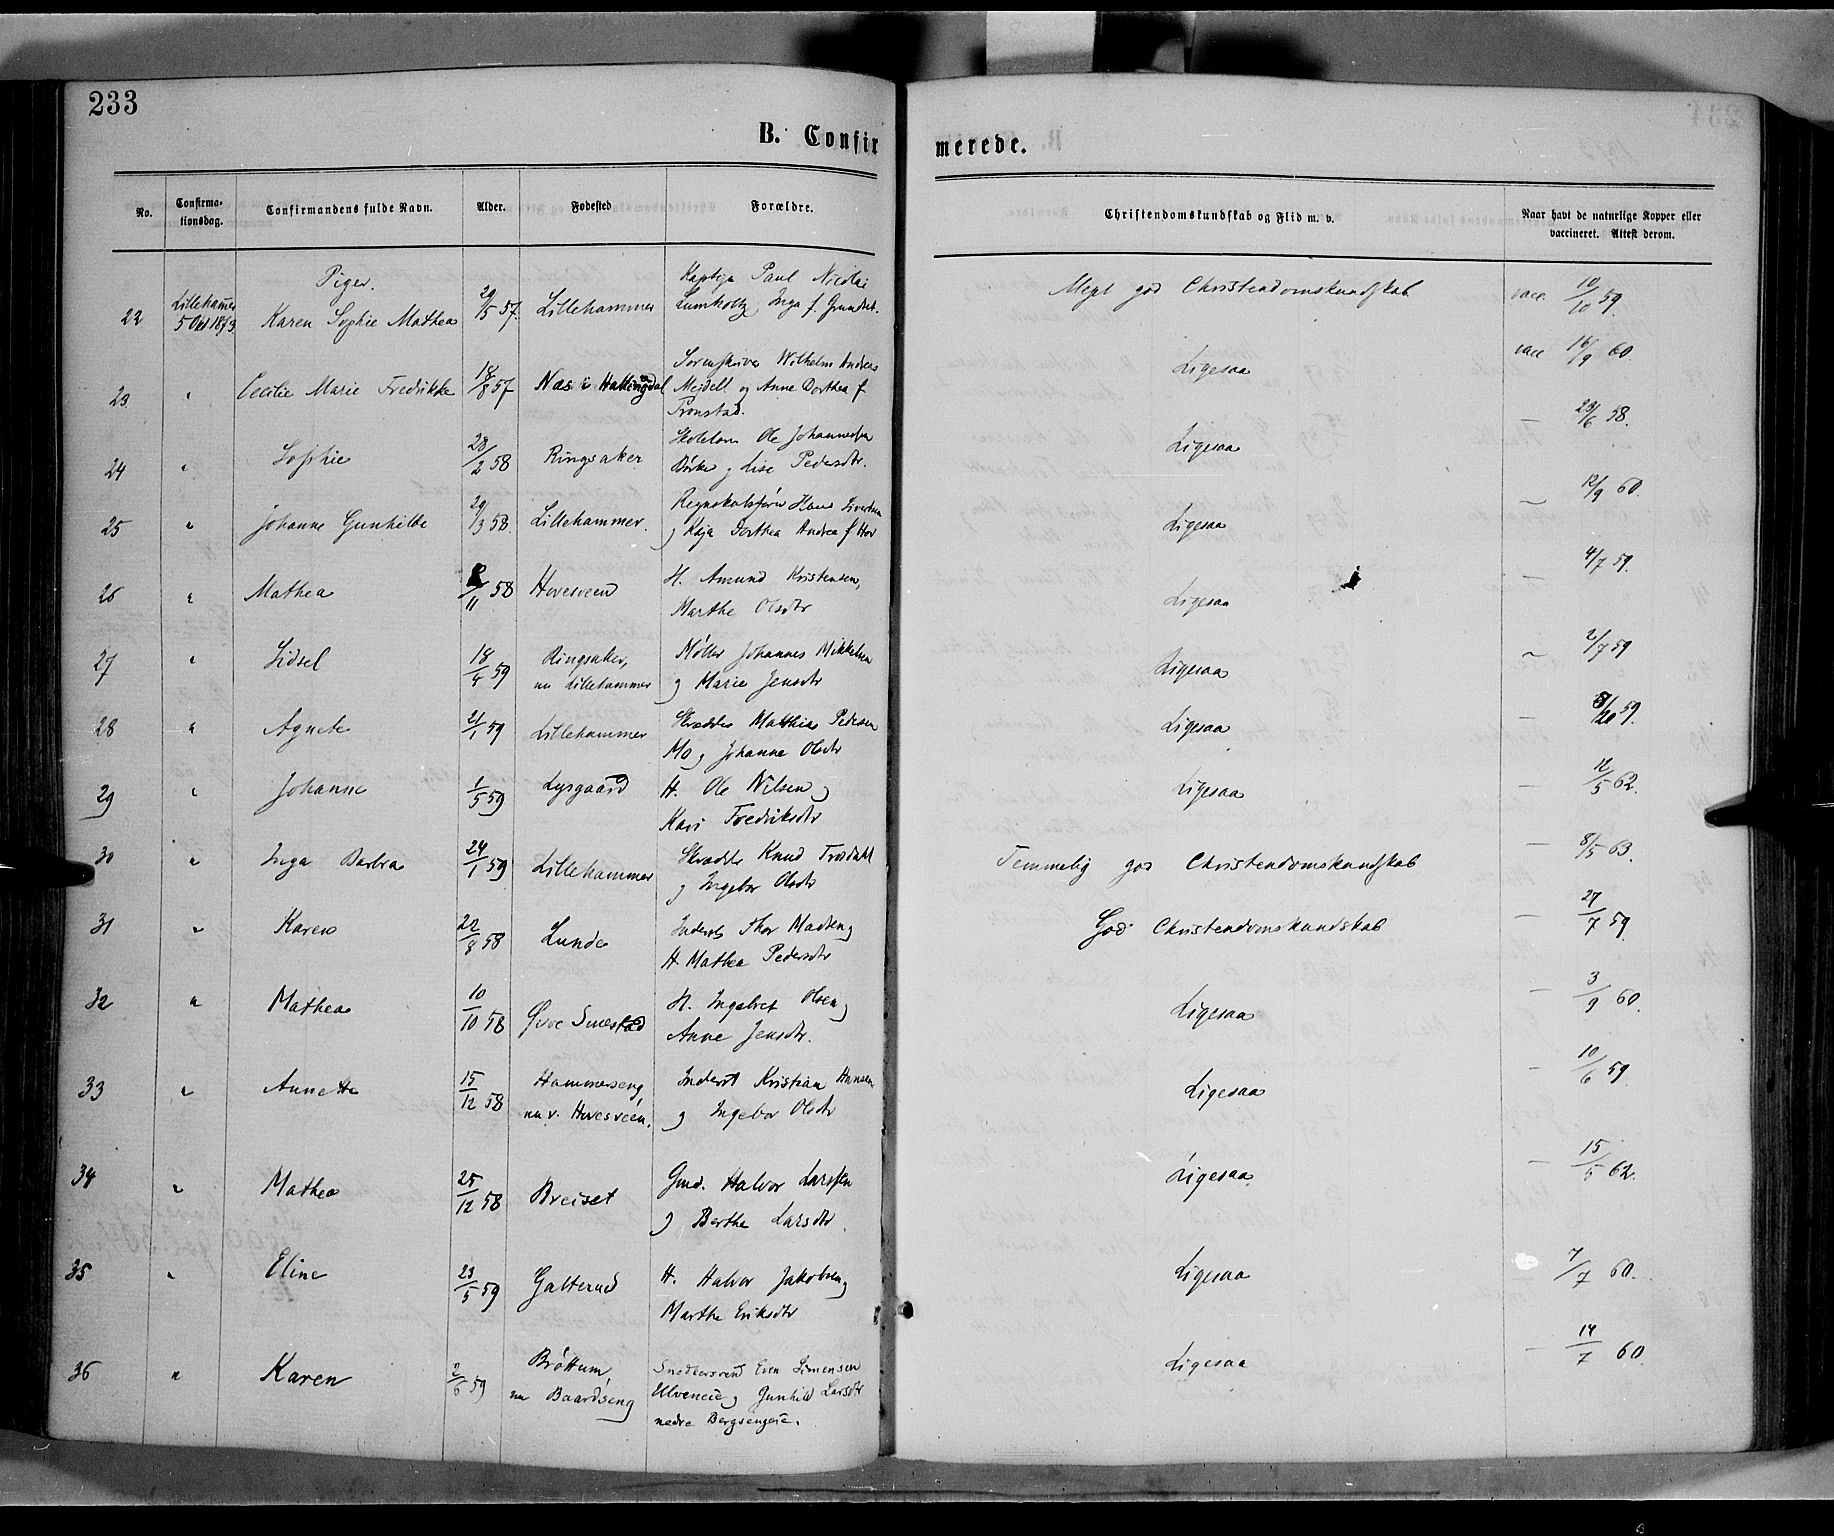 233
B. Confirmerede.
No. Confirmationsdag. Confirmandens fulde Navn. Alder. Fødested Forældre. Christendomskundskab og Flid m. v. Naar havt de naturlige Kopper eller vaccineret. Attest derom.
Piger.
22 Lillehammer 5 Okt 1873. Karen Sophie Mathea 29/5 57. Lillehammer Kaptejn Paul Nicolai Lumholtz, Inga f. Meget god Christendomskundskab vacc. 10/10 59.
23 " Cecilie Marie Fredrikke 18/8 57 Næs i Hallingdal Sorenskriver Wilhelm Andreas Mejdell og Anne Dorthea f Tronstad. Ligesaa vacc 16/9 60
24 " Sophie 28/2 58 Ringsaker Ole Johannesen og Lise Pedersdtr. Ligesaa — 23/6 58.
25 " Johanne Gunhilde 29/3 58. Lillehammer. Regnskabsfører Hans og Kaja Dorthea Andrea f Hov Ligesaa — 12/9 60.
26 " Mathea /11 58 Hovesveen H. Amund Kristensen, Marthe Olsdtr Ligesaa — 4/7 59.
27 " Sidsel 18/ 59 Ringsaker, nu Lillehammer Møller Johannes Mikkelsen og Marie Jensdtr Ligesaa — 2/7 59
28 " Agnete 21/1 59 Lillehammer Skrædder Matthias Pedersen Mo og Johanne Olsdtr Ligesaa — /10 59.
29 " Johanne 1/5 59 Lysgaard H. Ole Nilsen og Kari Fredriksdtr Ligesaa — 12/5 62.
30 " Inga Barbra 24/1 59 Lillehammer Skrædder Knud og Ingebor Olsdtr Temmelig god Christendomskundskab — 8/5 63.
31 " Karen 22/8 58 Lunde Inderst Thor Madsen og H. Mathea Pedersdtr God Christendomskundskab — 27/7 59.
32 " Mathea 10/10 58 Øvre Smestad H. Ingebret Olsen og Anne Jensdtr. Ligesaa — 3/9 60.
33 " Annette 15/12 58 Hammerseng nu v. Hovesveen. Inderst Kristian Hansen og Ingebor Olsdtr Ligesaa — 10/6 59
34 " Mathea 25/12 58 Breiset Gmd. Halvor Larssen og Berthe Larsdtr. Ligesaa — 15/5 62.
35 " Eline 23/5 59 Galterud H. Halvor Jakobsen og Marthe Eriksdtr Ligesaa 7/7 60.
36 " Karen 2/6 59 Brøttum, nu Baardseng Snedkersvend Even Simensen Ulveneie og Gunhild Larsdtr nedre Bergsengeie. Ligesaa — 14/7 60